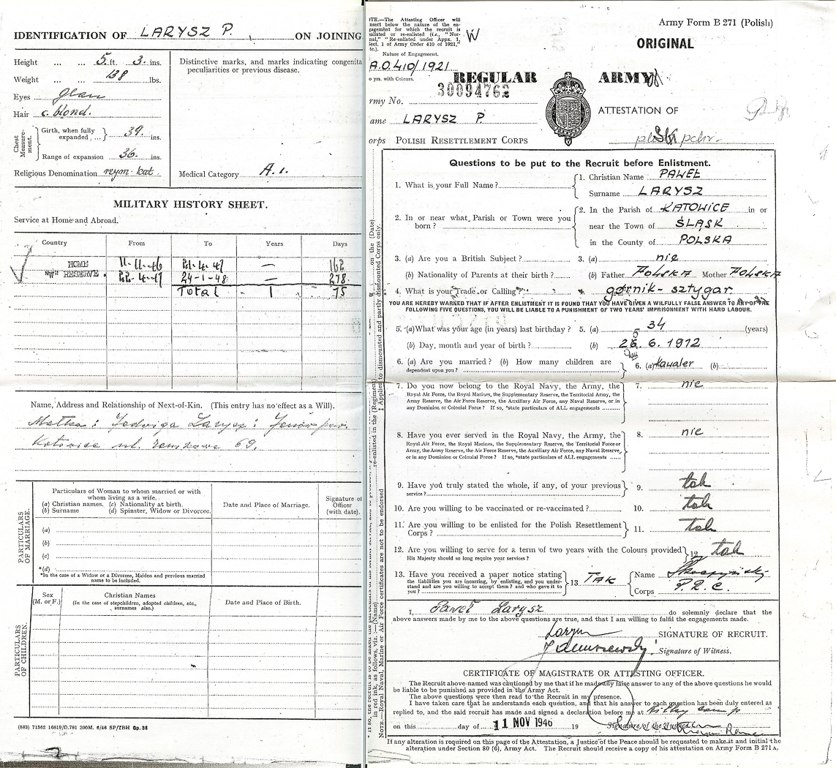 IDENTIFICATION OF LARYSZ P. ON JOINING
Height ... ... 5 ft. 3 ins.
Weight ... 138 lbs.
Eyes
Hair c. blond.
Chest Measurement.
Girth, when fully expanded ... 39 ins.
Range of expansion 36 ins.
Religious Denomination rzym-kat.
Distinctive marks, and marks indicating congenital
peculiarities or previous disease.
Medical Category A.1.
MILITARY HISTORY SHEET.
Service at Home and Abroad.
Country From To Years Days
HOME 11-11-46 21-4-47 — 162
RESERVE 22-4-47 24-1-48 — 278
Total 1 75
Name, Address and Relationship of Next-of-Kin. (This entry has no effect as a Will).
Matka: Jadwiga Larysz:
Katowice ul. 69.
PARTICULARS OF MARRIAGE.
Particulars of Woman to whom married or with
whom living as a wife.
(a) Christian names. (c) Nationality at birth.
(b) Surname (d) Spinster, Widow or Divorcee.
Date and Place of Marriage.
Signature of Officer (with date).
(a)
(b)
(c)
*(d)
*In the case of a Widow or a Divorcee, Maiden and previous married
name to be included.
PARTICULARS OF CHILDREN.
Sex (M. or F.)
Christian Names
(In the case of stepchildren, adopted children, etc., surnames also.)
Date and Place of Birth.
Army Form B 271 (Polish)
ORIGINAL
NOTE.—The Attesting Officer will
Nature of Engagement.
A.O. 410/1921
REGULAR ARMY
30094762
Army No.
ATTESTATION OF
Name LARYSZ P.
Corps POLISH RESETTLEMENT CORPS
Questions to be put to the Recruit before Enlistment.
1. What is your Full Name?
1. Christian Name PAWEŁ
Surname LARYSZ
2. In or near what Parish or Town were you born?
2. In the Parish of KATOWICE in or
near the Town of ŚLĄSK
in the County of POLSKA
3. (a) Are you a British Subject? 3. (a) nie
(b) Nationality of Parents at their birth? (b) Father POLSKA Mother POLSKA
4. What is your Trade or Calling? 4. górnik-sztygar
YOU ARE HEREBY WARNED THAT IF AFTER ENLISTMENT IT IS FOUND THAT YOU HAVE GIVEN A WILFULLY FALSE ANSWER TO ANY OF THE
FOLLOWING FIVE QUESTIONS, YOU WILL BE LIABLE TO A PUNISHMENT OF TWO YEARS' IMPRISONMENT WITH HARD LABOUR.
5. (a) What was your age (in years) last birthday? 5. (a) 34 (years)
(b) Day, month and year of birth? (b) 6. 1912
6. (a) Are you married? (b) How many children are dependent upon you? 6. (a) kawaler (b)
7. Do you now belong to the Royal Navy, the Army, the 7. nie
Royal Air Force, the Royal Marines, the Supplementary Reserve, the Territorial Army,
the Army Reserve, the Air Force Reserve, the Auxiliary Air Force, any Naval Reserve, or in
any Dominion or Colonial Force? If so, *state particulars of all engagements
8. Have you ever served in the Royal Navy, the Army, the 8. nie
Royal Air Force, the Royal Marines, the Supplementary Reserve, the Territorial Force or
Army, the Army Reserve, the Air Force Reserve, the Auxiliary Air Force, any Naval Reserve,
or in any Dominion or Colonial Force? If so, *state particulars of ALL engagements
9. Have you truly stated the whole, if any, of your previous service? 9. tak
10. Are you willing to be vaccinated or re-vaccinated? 10. tak
11. Are you willing to be enlisted for the Polish Resettlement Corps? 11. tak
12. Are you willing to serve for a term of two years with the Colours provided 12. tak
His Majesty should so long require your services?
13. Have you received a paper notice stating 13. TAK
the liabilities you are incurring, by enlisting, and do you understand and are you willing to accept them? and who gave it to you?
Name
Corps P.R.C.
I, Paweł Larysz do solemnly declare that the
above answers made by me to the above questions are true, and that I am willing to fulfil the engagements made.
SIGNATURE OF RECRUIT.
Signature of Witness.
CERTIFICATE OF MAGISTRATE OR ATTESTING OFFICER.
The Recruit above-named was cautioned by me that if he made any false answer to any of the above questions he would
be liable to be punished as provided in the Army Act.
The above questions were then read to the Recruit in my presence.
I have taken care that he understands each question, and that his answer to each question has been duly entered as
replied to, and the said recruit has made and signed a declaration before me at
on this day of 11 NOV 1946 19
If any alteration is required on this page of the Attestation, a Justice of the Peace should be requested to make it and initial the
alteration under Section 80 (6), Army Act. The Recruit should receive a copy of his attestation on Army Form B 271A.